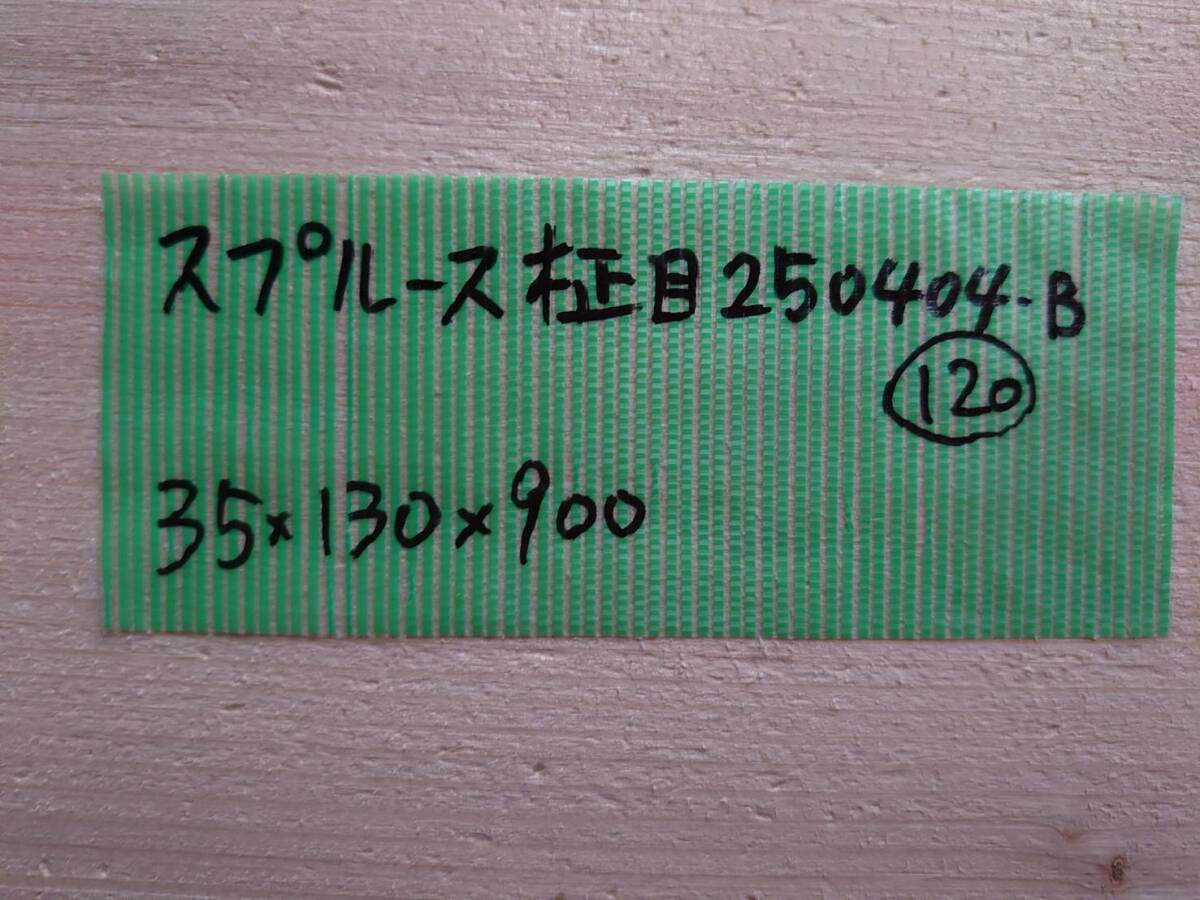 スプルース柾目250404-B
120
35×130×900